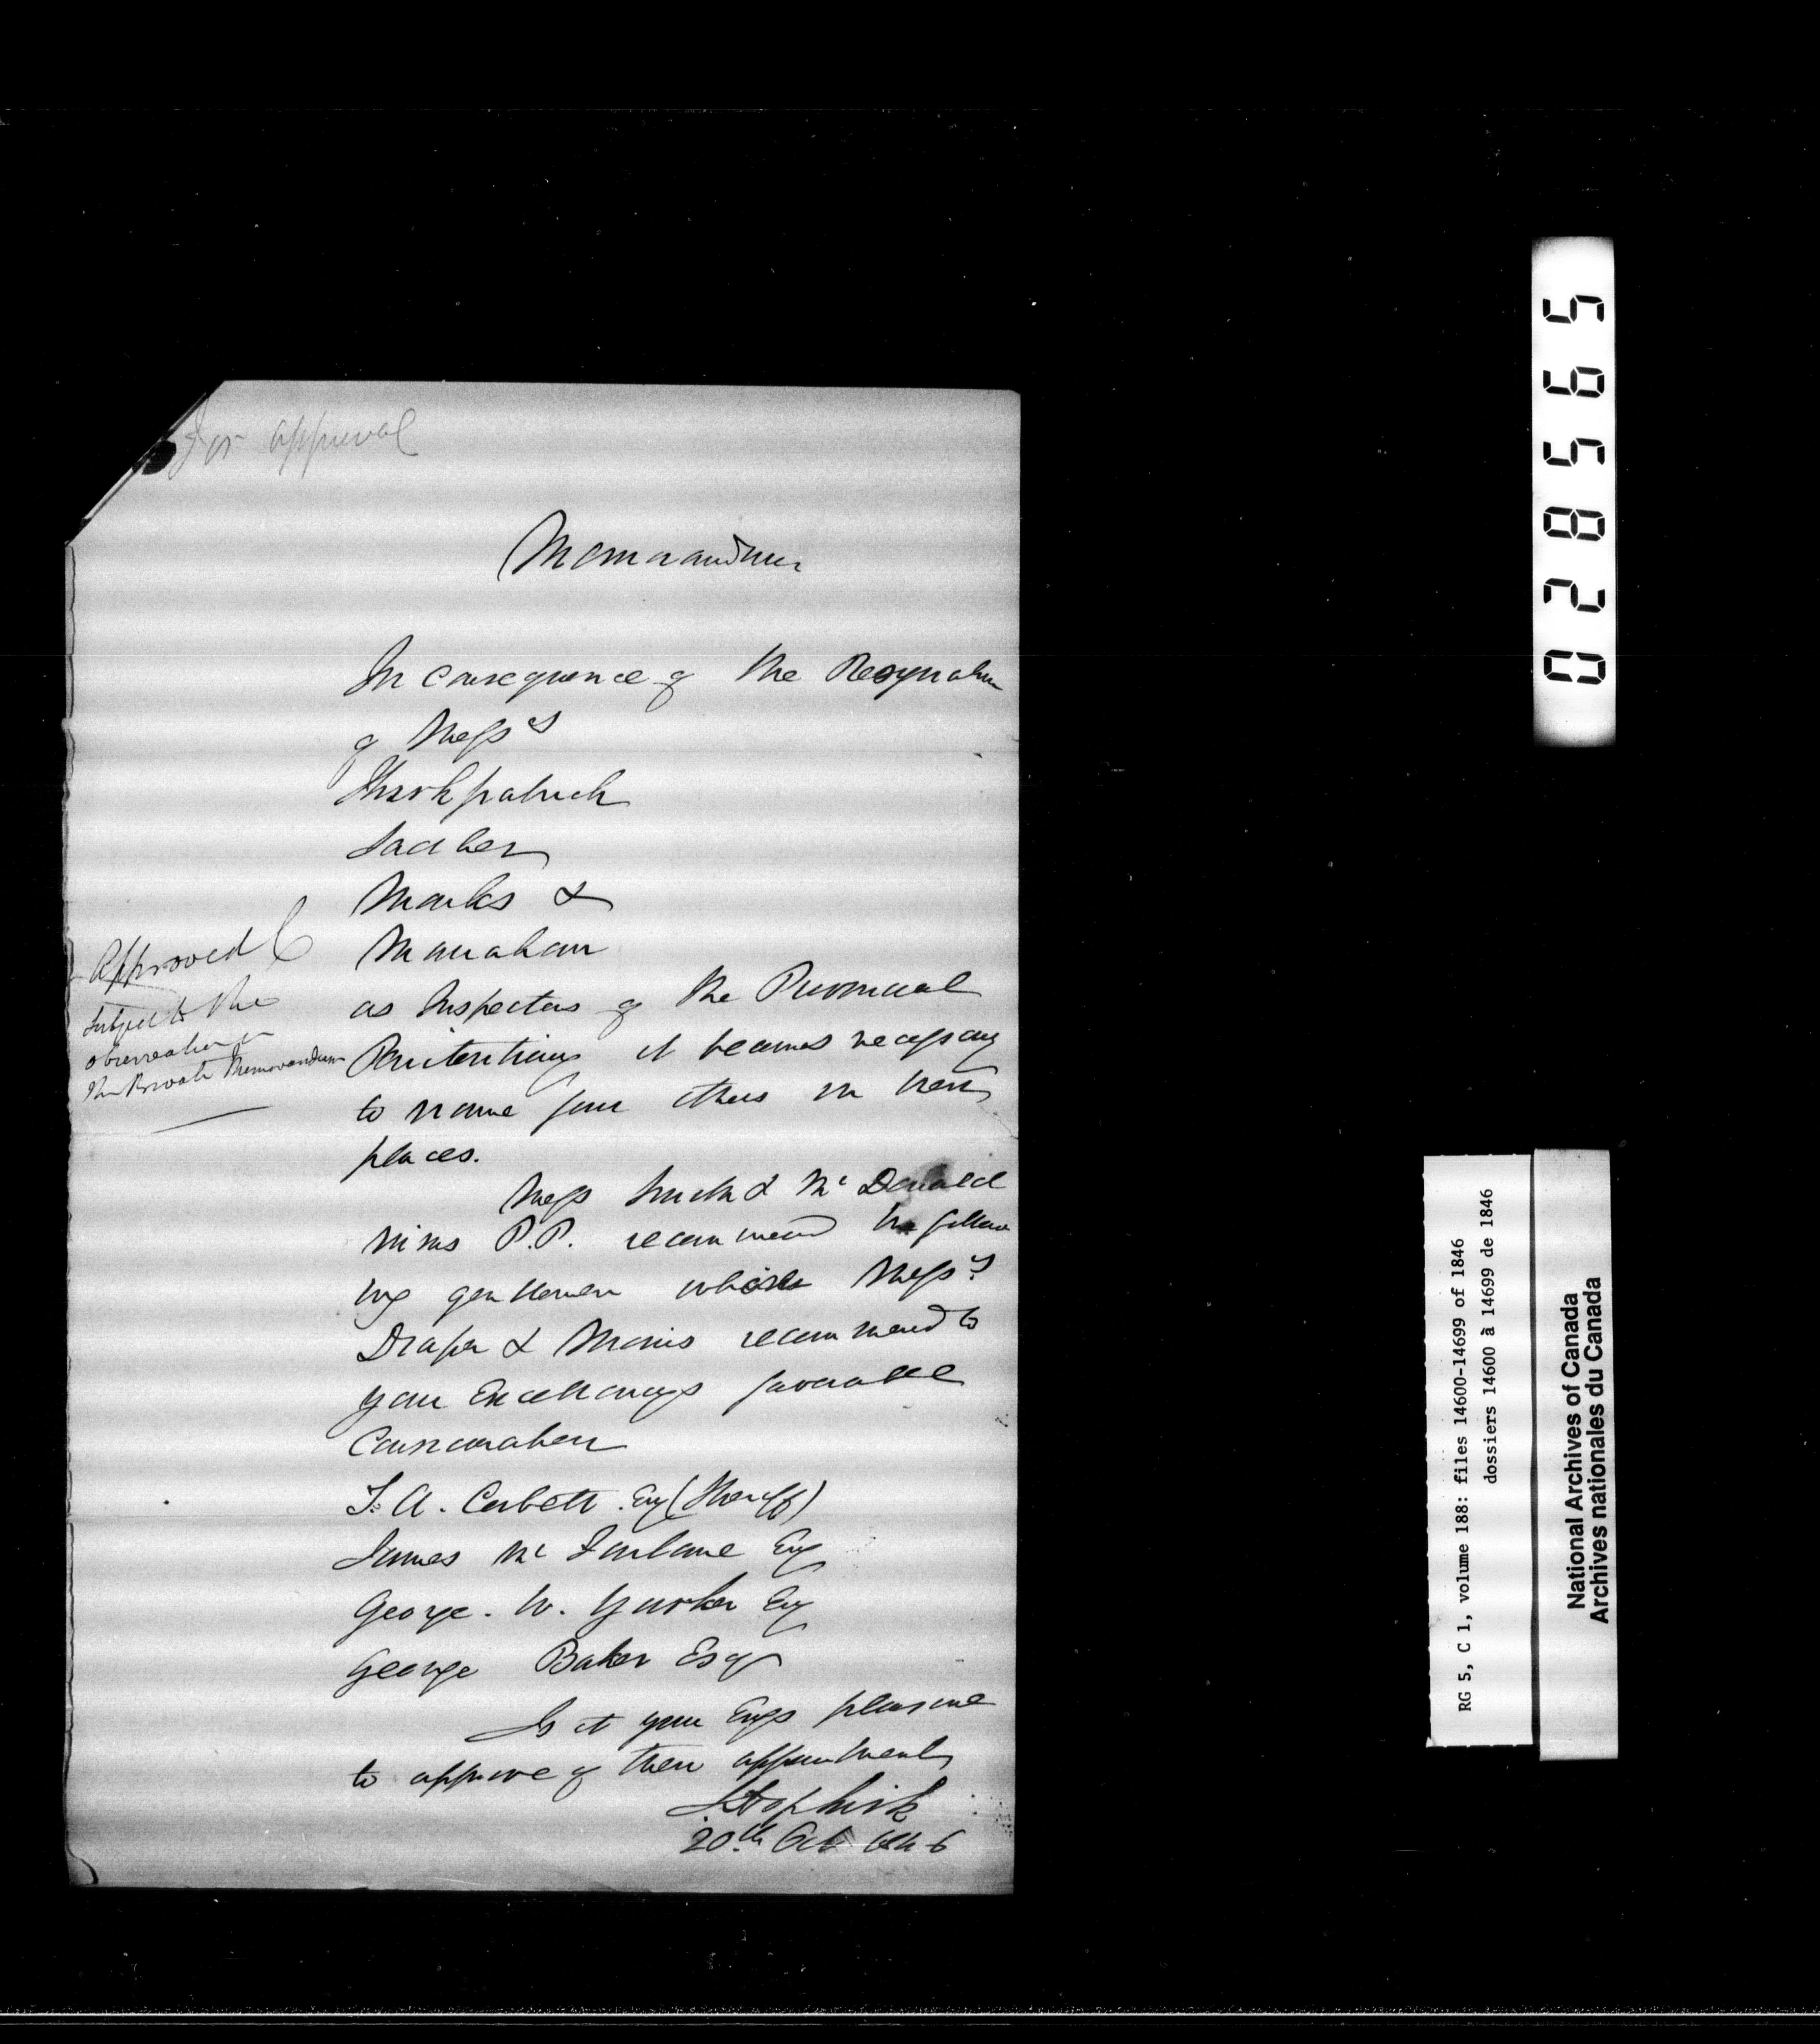 For approval
Memorandum
In consequence of the Resignation
of Messrs
Kirkpatrick
Sadlier
Marks &
Manahan
as Inspectors of the Provincial
Penitentiary it becomes necessary
to name four others in their
places.
Approved
Subject to the
observation in
the Private Memorandum
Messrs Smith & McDonald
M.P.P. recommend the follow
ing gentlemen whom Messrs
Draper & Morris recommend to
your Excellencys favorable
Consideration
T. A. Corbett Esq (Sheriff)
James McFarlane Esq
George W. Yarker Esq
George Baker Esqr
Is it your Excys pleasure
to approve of their appointment
20th Oct 1846
028565
RG 5, C 1, volume 188: files 14600-14699 of 1846
dossiers 14600 à 14699 de 1846
National Archives of Canada
Archives nationales du Canada